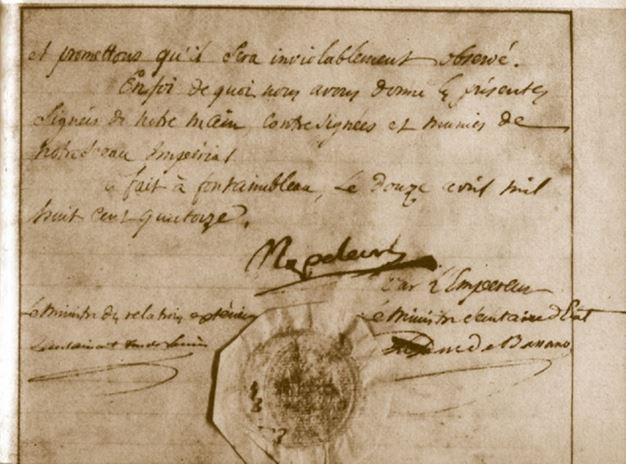 et promettons qu'il sera inviolablement observé.
En foi de quoi nous avons donné les présentes
signées de notre main, contresignées et munies de
notre sceau Impérial
fait à fontainbleau, le douze avril mil
huit cent quatorze.
Napoleon
Par l'Empereur
Le Ministre des relations extérieures
Le Ministre secretaire d'Etat
Le Duc de Bassano